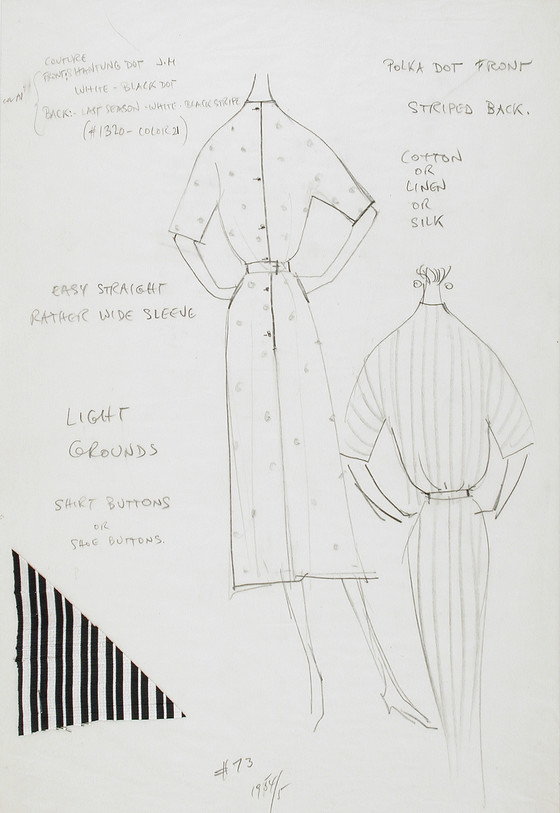 COUTURE
FRONT: SHANTUNG DOT J.M
WHITE - BLACK DOT
BACK:- LAST SEASON - WHITE - BLACK STRIPE
(#1320 - COLOR 21)
POLKA DOT FRONT
STRIPED BACK.
COTTON
OR
LINEN
OR
SILK
EASY STRAIGHT
RATHER WIDE SLEEVE
LIGHT
GROUNDS
SHIRT BUTTONS
OR
SAGE BUTTONS.
#73
1954/5